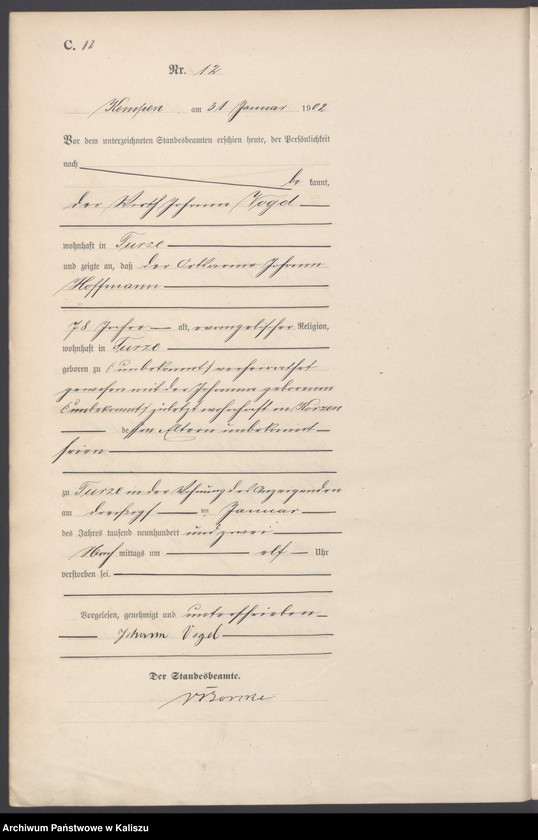 C. 12
Nr. 12
Kempen am 31 Januar 1902
Vor dem unterzeichneten Standesbeamten erschien heute, der Persönlichkeit
nach
be kannt,
der Wirth Johann Vogel
wohnhaft in Turze
und zeigte an, daß der Ortsarme Johann
Hoffmann
78 Jahre alt, evangelischer Religion,
wohnhaft in Turze
geboren zu (unbekannt) verheirathet
gewesen mit der Johanna geborenen
(unbekannt) zuletzt wohnhaft in
dessen Eltern unbekannt
seien
zu Turze in der Wohnung des Anzeigenden
am dreißigsten Januar
des Jahres tausend neunhundert und zwei
Nach mittags um elf Uhr
verstorben sei.
Vorgelesen, genehmigt und unterschrieben
Johann Vogel
Der Standesbeamte.
Archiwum Państwowe w Kaliszu